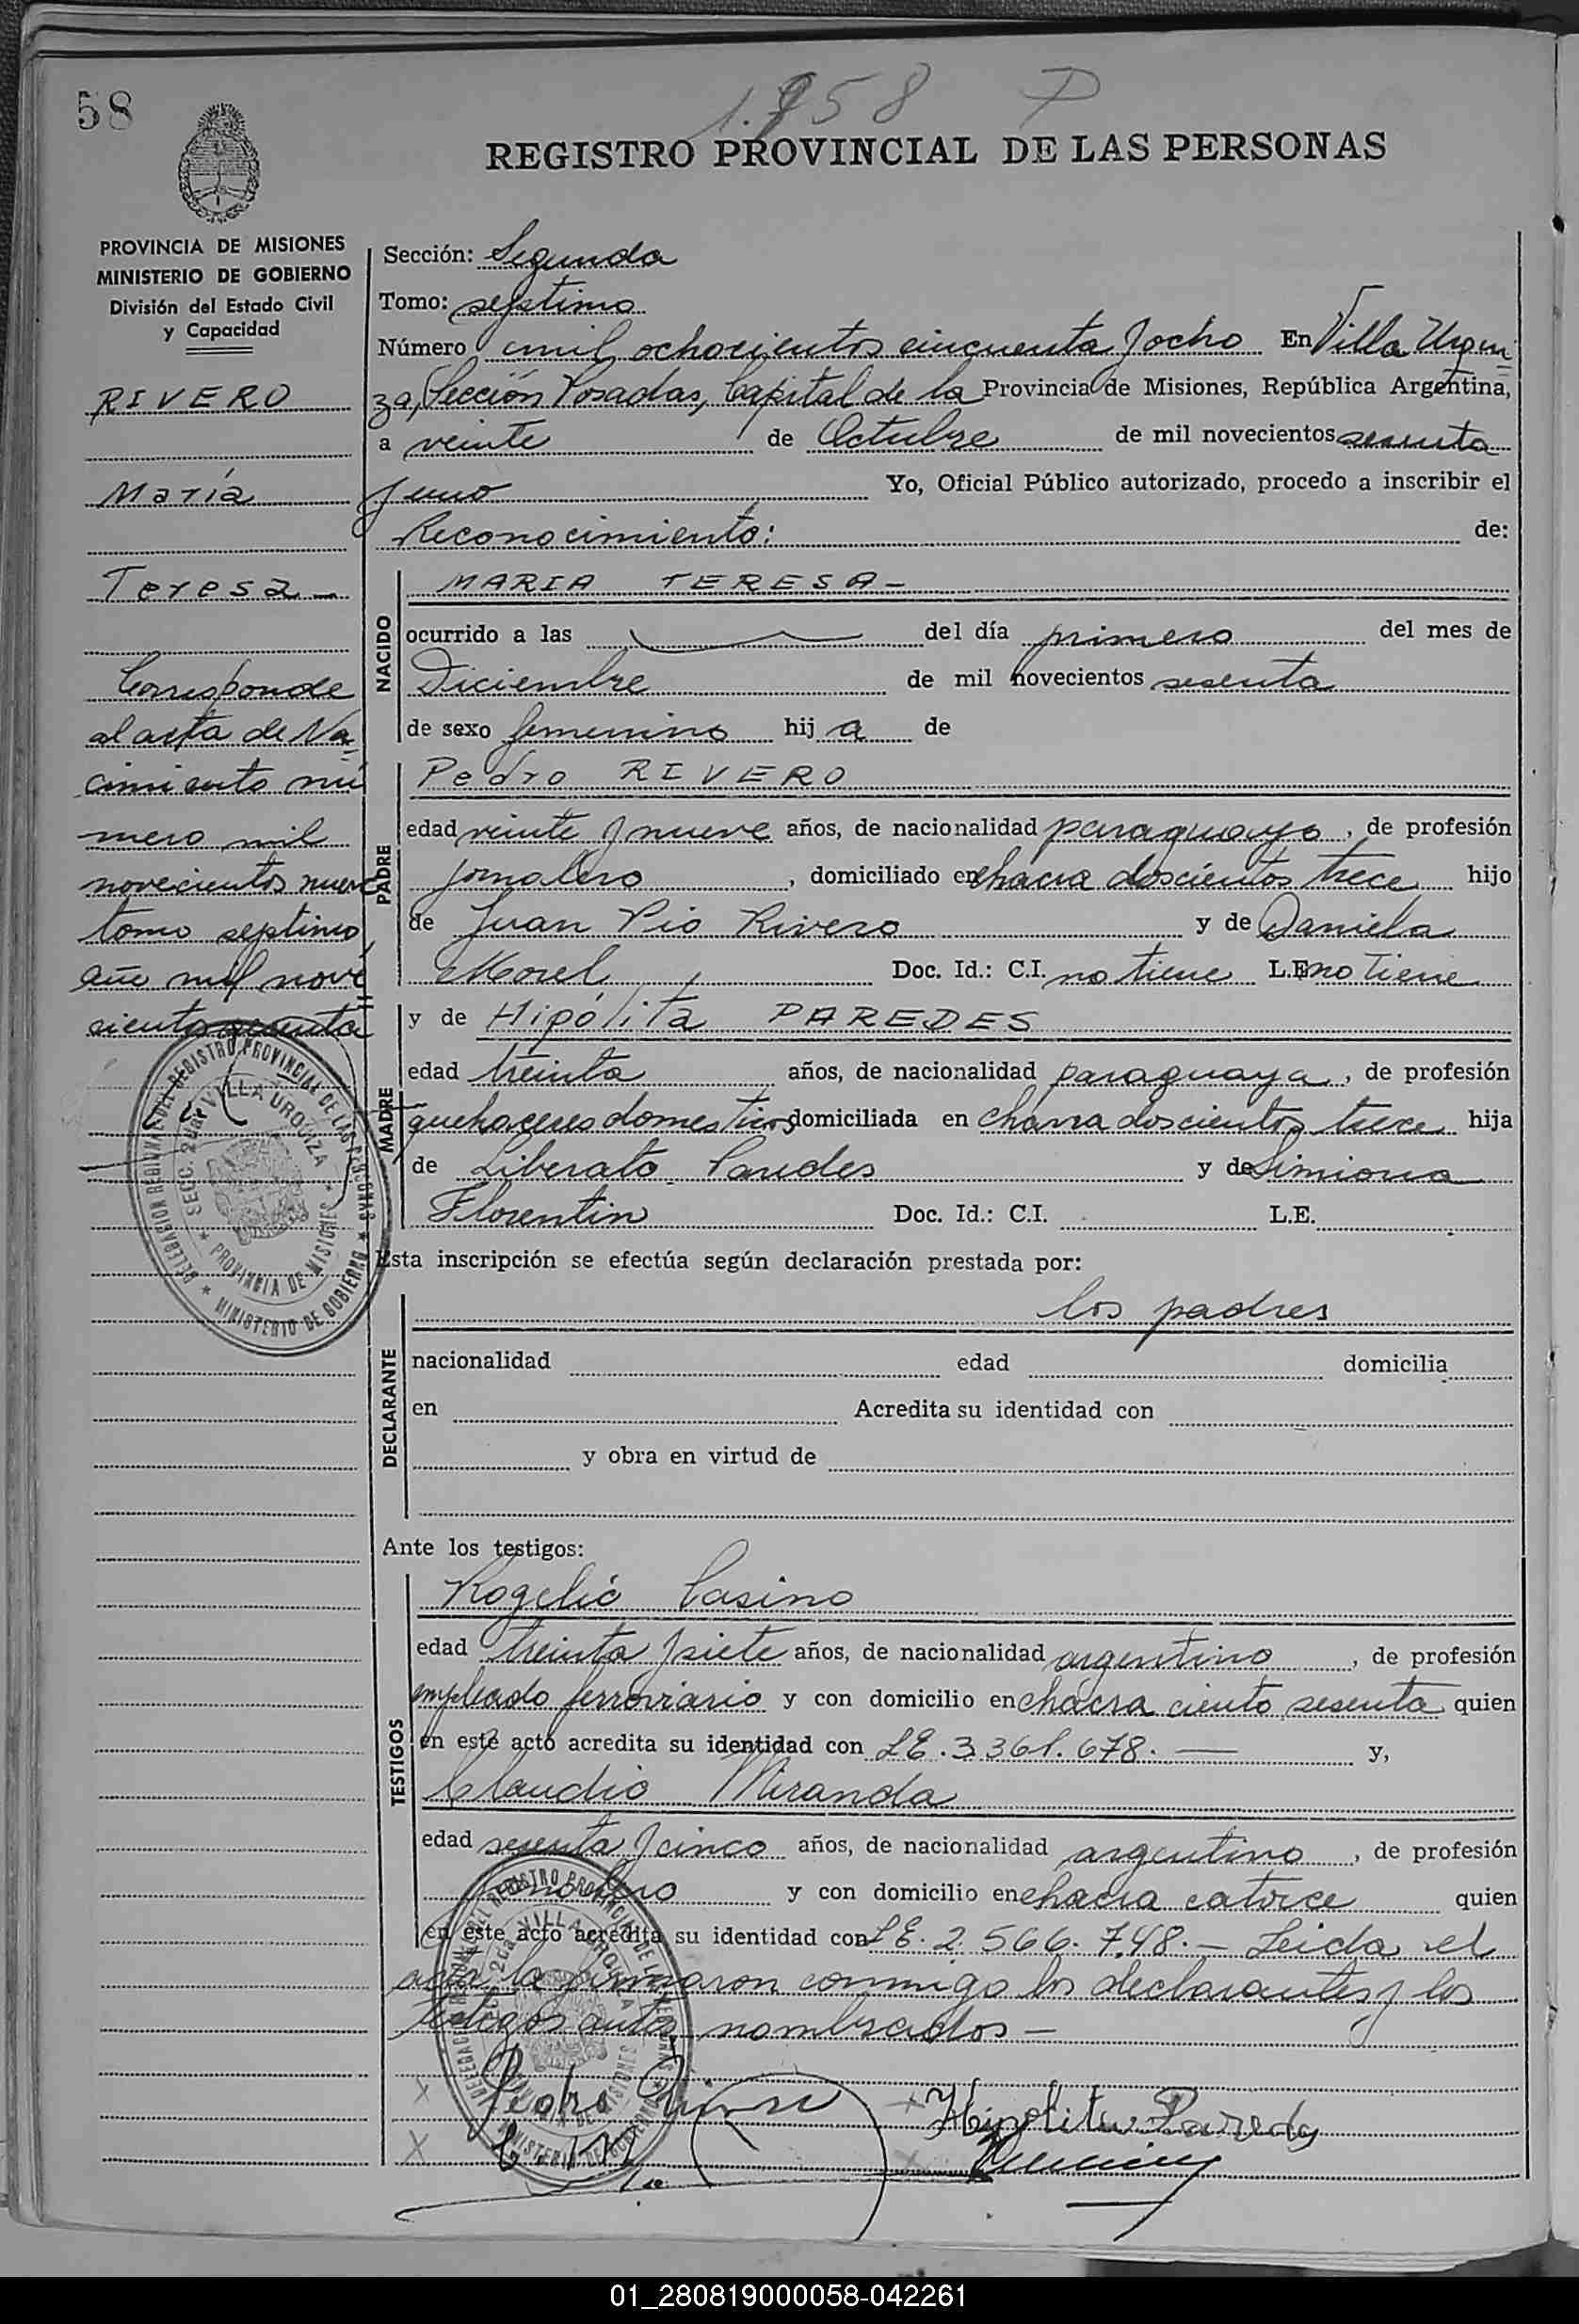 58
1.858 P
REGISTRO PROVINCIAL DE LAS PERSONAS
PROVINCIA DE MISIONES
MINISTERIO DE GOBIERNO
División del Estado Civil
y Capacidad
RIVERO
María
Teresa
Corresponde
al acta de Na-
cimiento nú
mero mil
novecientos nueve
tomo septimo
año mil nove
cientos sesenta
Sección: Segunda
Tomo: septimo
Número mil ochocientos cincuenta y ocho En Villa Urqui
za, Sección Posadas, Capital de la Provincia de Misiones, República Argentina,
a veinte de Octubre de mil novecientos sesenta
y uno Yo, Oficial Público autorizado, procedo a inscribir el
Reconocimiento: de:
NACIDO
MARIA TERESA-
ocurrido a las del día primero del mes de
Diciembre de mil novecientos sesenta
de sexo femenino hija de
PADRE
Pedro RIVERO
edad veinte y nueve años, de nacionalidad paraguayo, de profesión
jornalero, domiciliado en chacra doscientos trece hijo
de Juan Pio Rivero y de Daniela
Morel Doc. Id.: C.I. no tiene L.E. no tiene
MADRE
y de Hipólita PAREDES
edad treinta años, de nacionalidad paraguaya, de profesión
quehaceres domesticos domiciliada en chacra doscientos trece hija
de Liberato Paredes y de Simiona
Florentin Doc. Id.: C.I. L.E.
Esta inscripción se efectúa según declaración prestada por:
DECLARANTE
los padres
nacionalidad edad domicilia
en Acredita su identidad con
y obra en virtud de
Ante los testigos:
TESTIGOS
Rogelio Casino
edad treinta y siete años, de nacionalidad argentino, de profesión
empleado ferroviario y con domicilio en chacra ciento sesenta quien
en este acto acredita su identidad con L.E. 3.361.678.- y,
Claudio Miranda
edad sesenta y cinco años, de nacionalidad argentino, de profesión
jornalero y con domicilio en chacra catorce quien
en este acto acredita su identidad con L.E. 2.566.748.- Leida el
acta, la firmaron conmigo los declarantes y los
testigos antes nombrados-
Pedro
Hipolita Paredes
DELEGACION REGIONAL DEL REGISTRO PROVINCIAL DE LAS PERSONAS
MINISTERIO DE GOBIERNO
SECC. 2da VILLA URQUIZA
PROVINCIA DE MISIONES
01_280819000058-042261